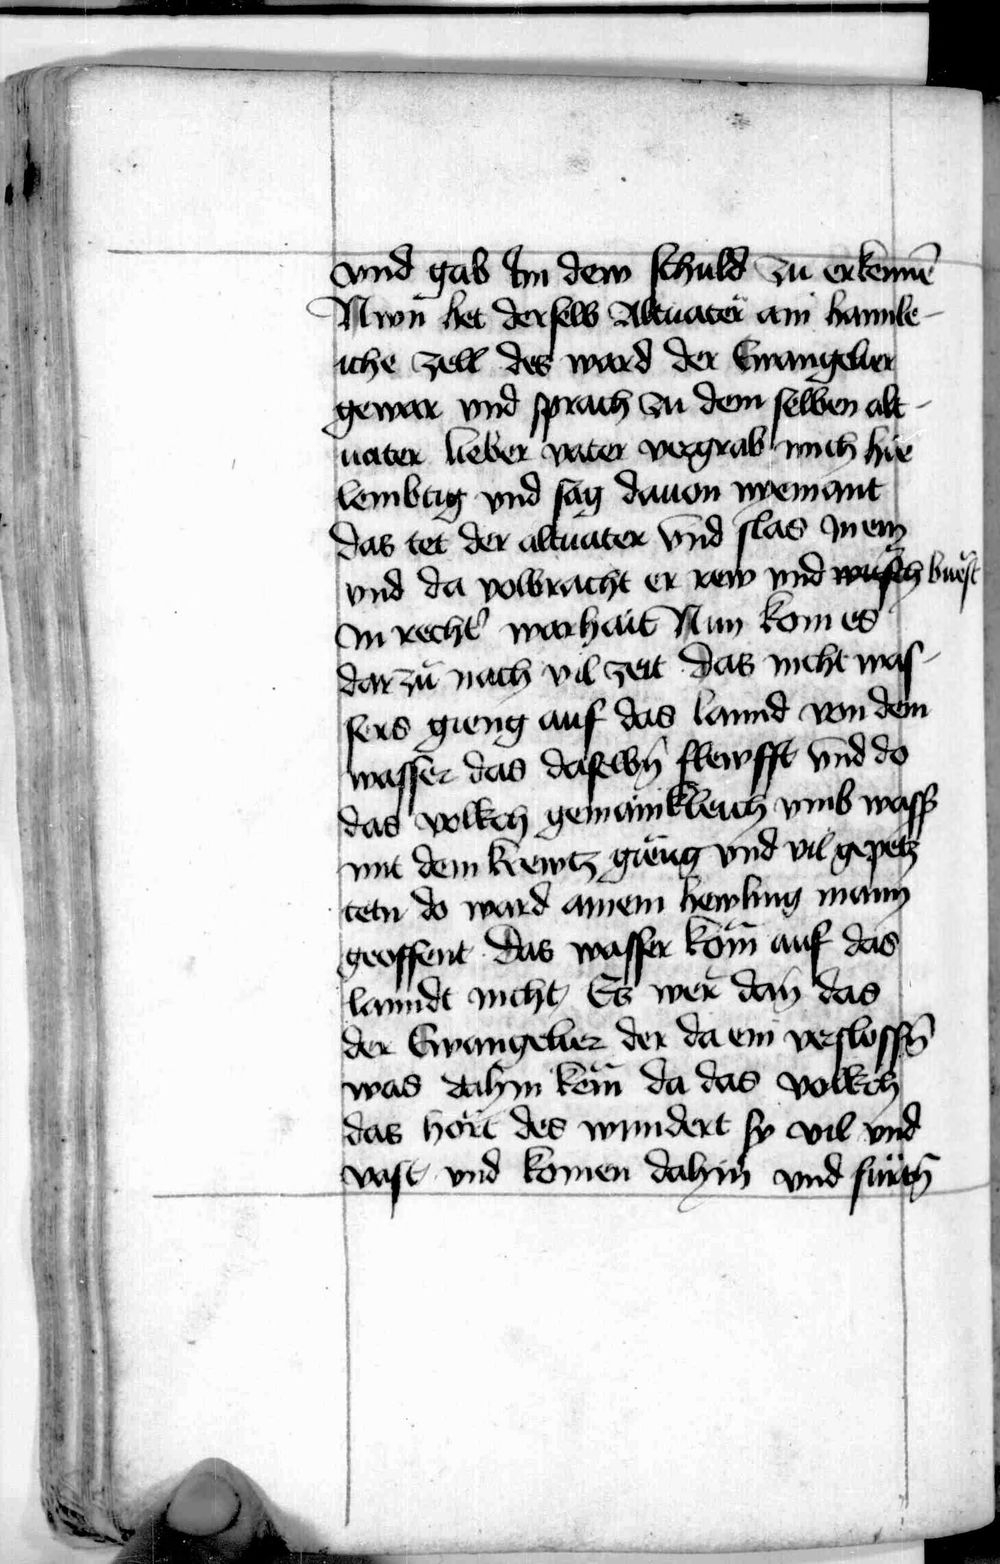 vnd gab Im dew schuld zu erkennē
Nwn het derselb Altuater ain hamle-
iche zell des ward der Ewangelier
gewar vnd sprach zu dem selben alt-
uater lieber vater vergrab mich hie
lembtig vnd sag dauon nyemant
das tet der altuater vnd slas In ein
vnd da volbracht er rew vnd buest
in recht' warhait Nun kom es
dar zu nach vil zeit das nicht was-
sers gieng auf das lannd von dem
wasser das daselbn̄ flewsst vnd do
das volkch gemainkleich vmb wass
mit dem krewtz gieng vnd vil gepetz
teten do ward ainem hewling mann
geoffent Das wasser köm auf das
lanndt nicht Es wer dan̄ das
der Ewangelier der da ein verslossn̄
was dahin köm da das volkch
das hört des wundert sy vil vnd
vast vnd komen dahin vnd